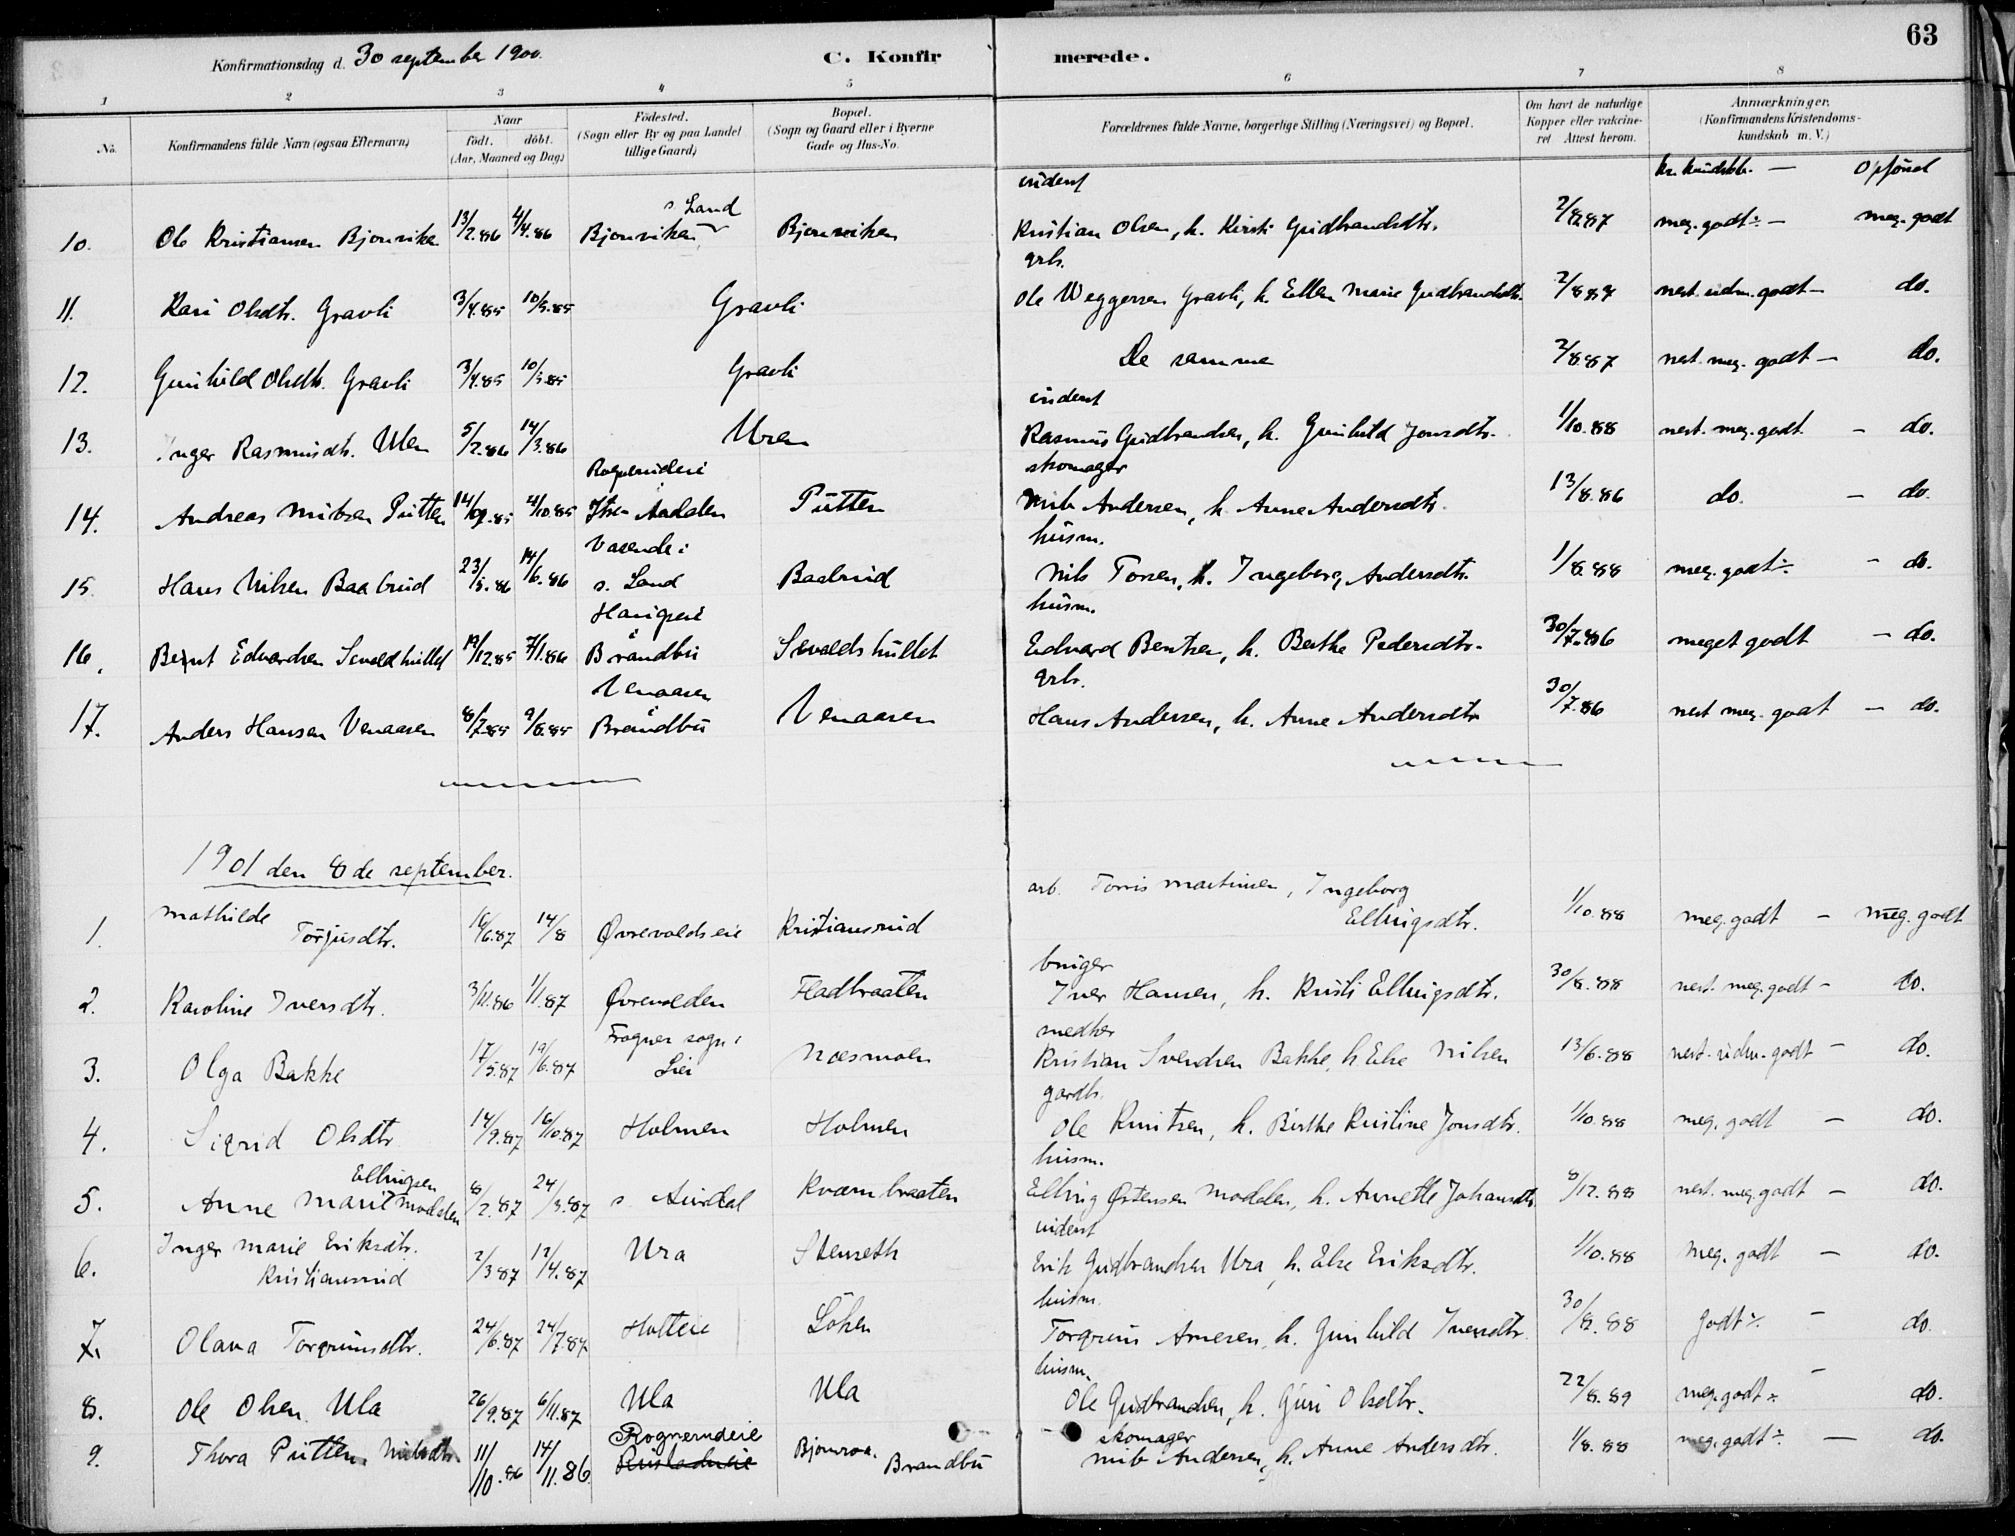 63
Konfirmationsdag d. 30 september 1900. C. Konfirmerede.
1 2 3 4 5 6 7 8
No. Konfirmandens fulde Navn (ogsaa Efternavn) Naar født. døbt. (Aar, Maaned og Dag) Fødested. (Sogn eller By og paa Landet tillige Gaard) Bopæl. (Sogn og Gaard eller i Byerne Gade og Hus-No. Forældrenes fulde Navne, borgerlige Stilling (Næringsvei) og Bopæl. Om havt de naturlige Kopper eller vaccineret Attest herom. Anmærkninger. (Konfirmandens Kristendomskundskab m. V.)
kr. kundskb. — Opførsel
s. Land
10. Ole Kristiansen Bjonviken 13/2.86 4/4.86 Bjonviken Bjonviken Kristian Olsen, h. Kirsti Gudbrandsdtr. 2/8.87 meg. godt ÷ — meg. godt
grb.
11. Kari Olsdtr. Gravli 3/4.85 10/5.85 Gravli Ole Weggersen Gravli, h. Ellen Marie Gudbrandsdtr. 2/8.87 nest. udm. godt — do.
12. Gunhild Olsdtr. Gravli 3/4.85 10/5.85 Gravli De samme 2/8.87 nest. meg. godt — do.
inderst
13. Inger Rasmusdtr. Uren 5/2.86 14/3.86 Uren Rasmus Gudbrandsen, h. Gunhild Jonsdtr. 1/10.88 nest. meg. godt. — do.
skomager
14. Andreas Nilsen Pütten 14/09.85 4/10.85 Ytre Aadalen Pütten Nils Andersen, h. Anne Andersdtr. 13/8.86 do. — do.
Vasende i husm.
15. Hans Nilsen Baabrud 23/5.86 14/6.86 s. Land Baabrud Nils Torsen, h. Ingeborg Andersdtr. 1/8.88 meg. godt ÷ — do.
husm.
16. Bernt Edvardsen Sevaldshullet 19/12.85 7/1.86 i Brandbu Sevaldshullet Edvard Bentsen, h. Berthe Pedersdtr. 30/7.86 meget godt — do.
Venaasen grb.
17. Anders Hansen Venaasen 8/7.85 9/8.85 i Brandbu Venaasen Hans Andersen, h. Anne Andersdtr. 30/7.86 nest meg. godt — do.
1901 den 8de september.
1. Mathilde Torjusdtr. 16/6.87 14/8 Øvrevoldseie Kristiansrud arb. Torris Martinsen, Ingeborg Ellingsdtr. 1/10.88 meg. godt — meg. godt
bruger
2. Karoline Iversdtr. 3/11.86 1/1.87 Øvrevolden Fladbraaten Iver Hansen, h. Kirsti Ellingsdtr. 30/8.88 nest. meg. godt — do.
Frogner sogn i
3. Olga Bakke 17/5.87 19/6.87 Lier Næsmoen Kristian Svendsen Bakke, h. Else Nilsen 13/6.88 nest. udm. godt — do.
gardb.
4. Sigrid Olsdtr. 14/9.87 16/10.87 Holmen Holmen Ole Knutsen, h. Birthe Kristine Jonsdtr. 1/10.88 meg. godt — do.
Ellingsen husm.
5. Anne Marit Modalen 8/2.87 24/3.87 s. Aurdal Kvernbraaten Elling Østensen Modalen, h. Annette Johansdtr. 8/12.88 nest. meg. godt — do.
inderst
6. Inger Marie Eriksdtr. Kristiansrud 2/3.87 12/4.87 Ura Stenseth Erik Gudbrandsen Ura, h. Else Eriksdtr. 1/10.88 meg. godt — do.
husm.
7. Olava Torgrimsdtr. 24/6.87 24/7.87 Holteie Løken Torgrim Arnesen, h. Gunhild Iversdtr. 30/8.88 godt ÷ — do.
husm.
8. Ole Olsen Ula 26/9.87 6/11.87 Ula Ula Ole Gudbrandsen, h. Guri Olsdtr. 22/8.89 meg. godt ÷ — do.
skomager
9. Thora Pütten Nilsdtr. 11/10.86 14/11.86 Rognerudeie Bjonroa. Brandbu Nils Andersen, h. Anne Andersdtr. 1/8.88 meg. godt ÷ — do.